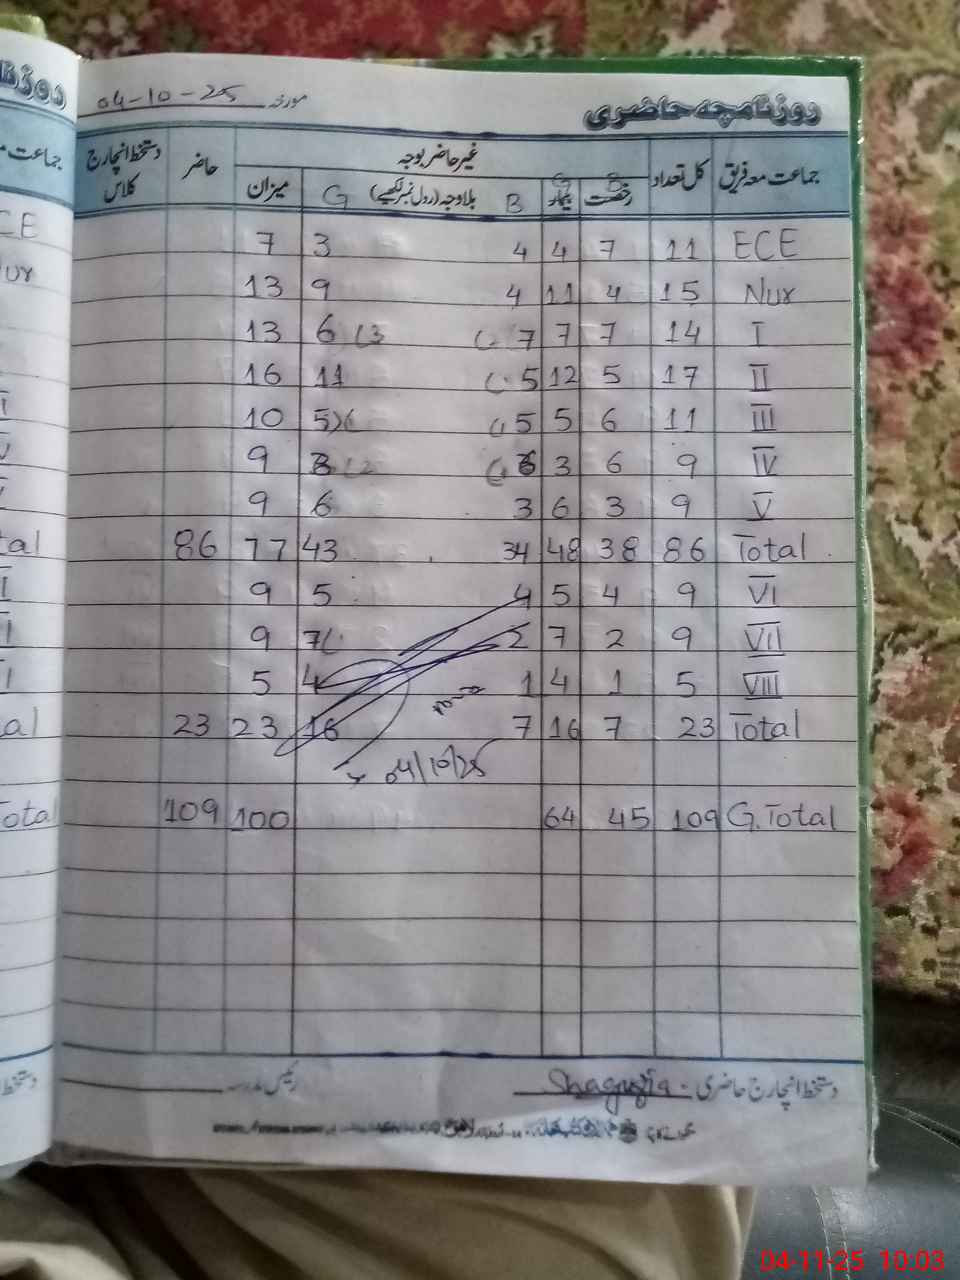 روزنامچہ حاضری مورخہ 04-10-25
جماعت معہ فریق کل تعداد غیر حاضر بوجہ حاضر دستخط انچارج کلاس
رخصت B بیمار G B بلاوجہ (رول نمبر لکھیے) G میزان
ECE 11 7 4 4 3 7
Nur 15 4 11 4 9 13
I 14 7 7 7 6 13
II 17 5 12 5 11 16
III 11 6 5 5 5 10
IV 9 6 3 6 3 9
V 9 3 6 3 6 9
Total 86 38 48 34 43 77 86
VI 9 4 5 4 5 9
VII 9 2 7 2 7 9
VIII 5 1 4 1 4 5
Total 23 7 16 7 16 23 23
04/10/25
G.Total 109 45 64 100 109
دستخط انچارج حاضری Shagufta رئیس مدرسہ
جماعت م
CE
Nur
tal
tal
Total
دستخط
04-11-25 10:03